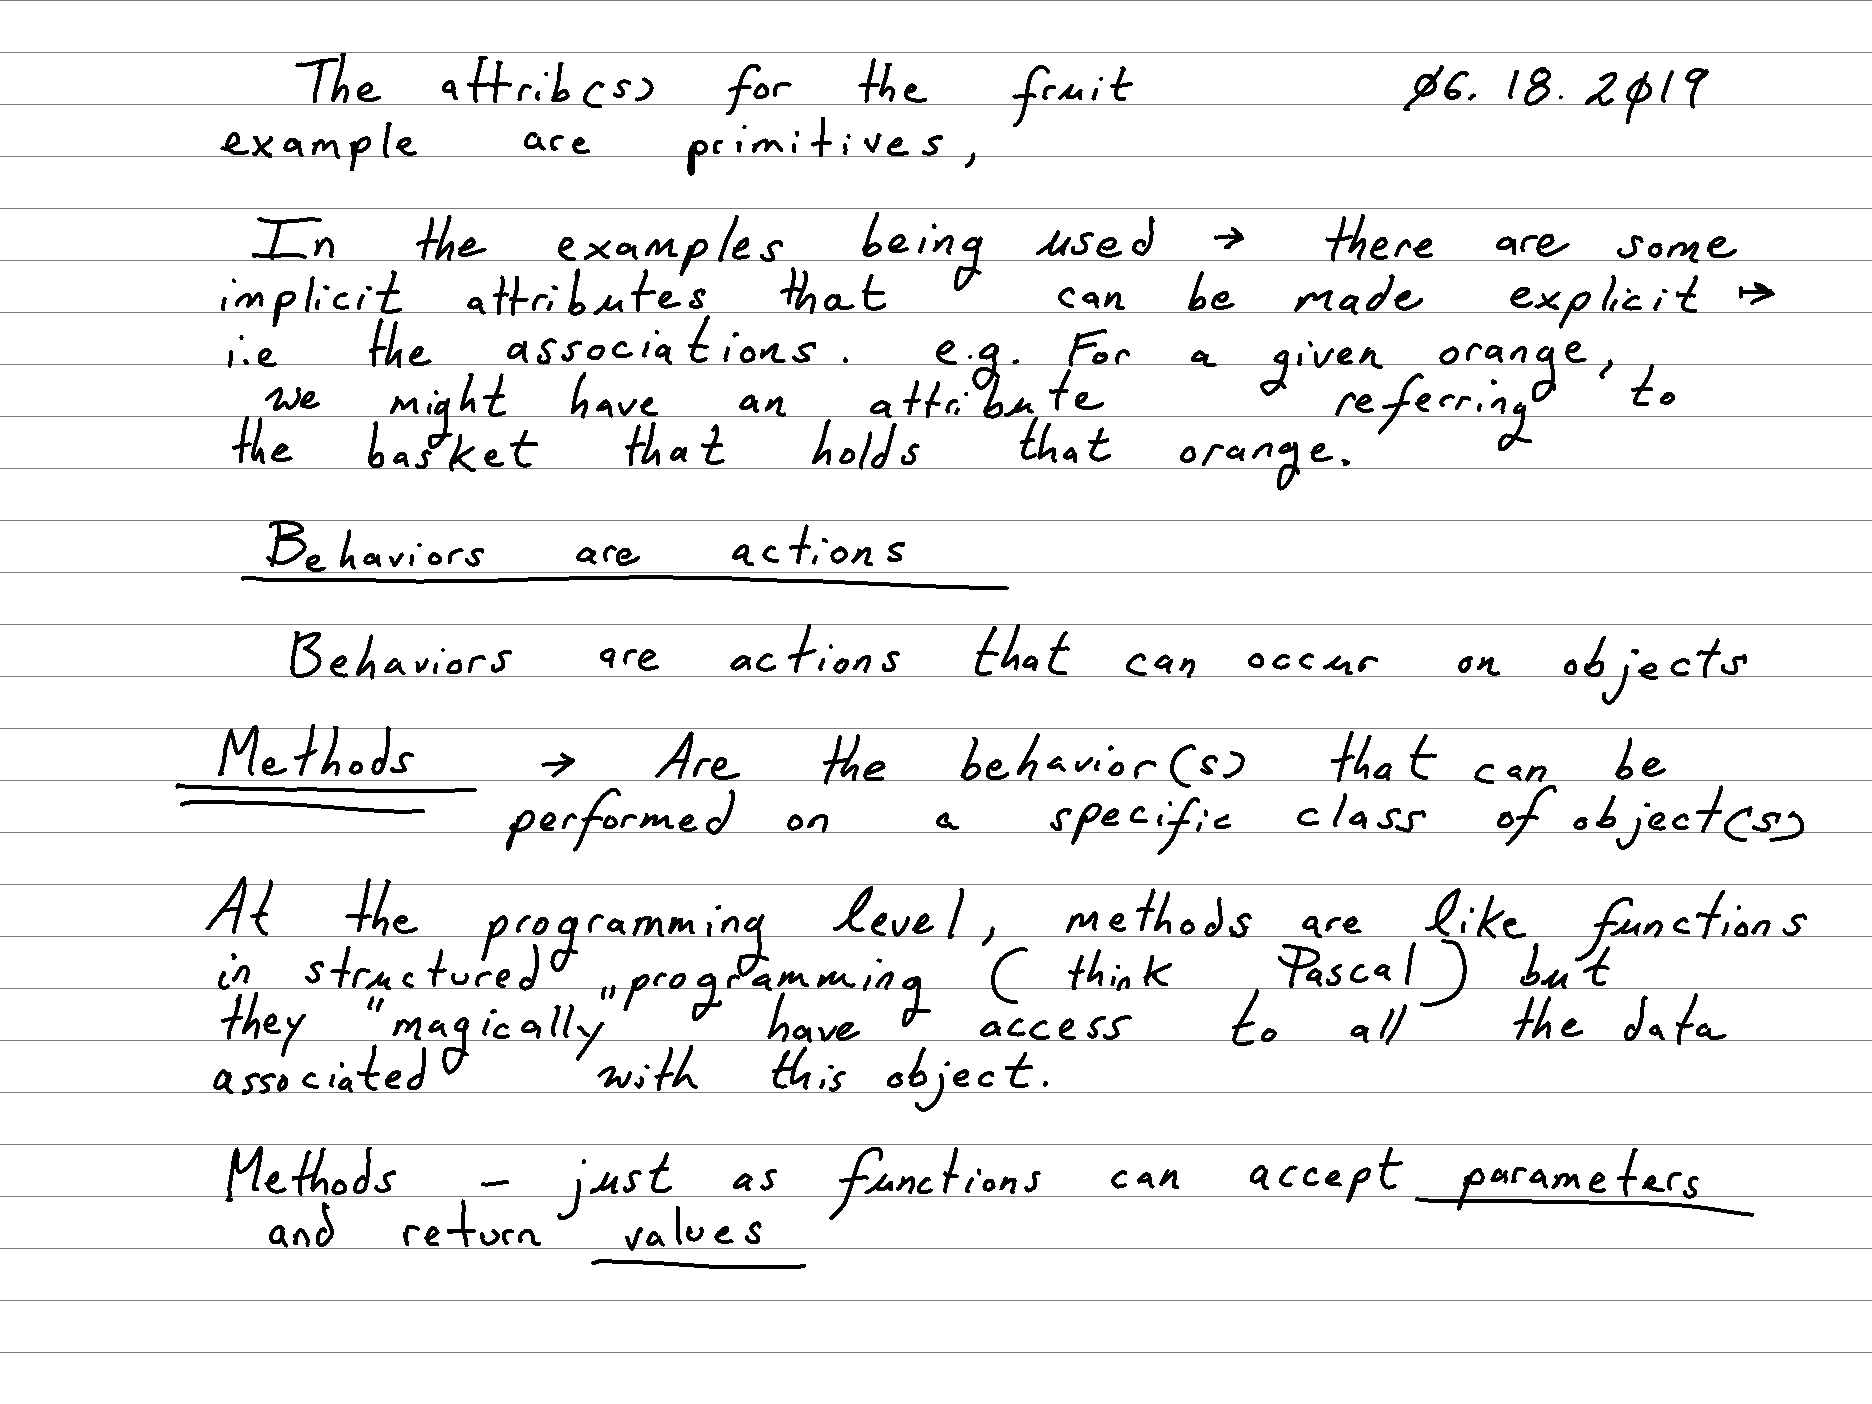 The attrib(s) for the fruit ø6. 18. 2ø19
example are primitives,
In the examples being used → there are some
implicit attributes that can be made explicit ↦
i.e the associations. e.g. For a given orange,
we might have an attribute referring to
the basket that holds that orange.
Behaviors are actions
Behaviors are actions that can occur on objects
Methods → Are the behavior(s) that can be
performed on a specific class of object(s)
At the programming level, methods are like functions
in structured programming (think Pascal) but
they "magically" have access to all the data
associated with this object.
Methods - just as functions can accept parameters
and return values